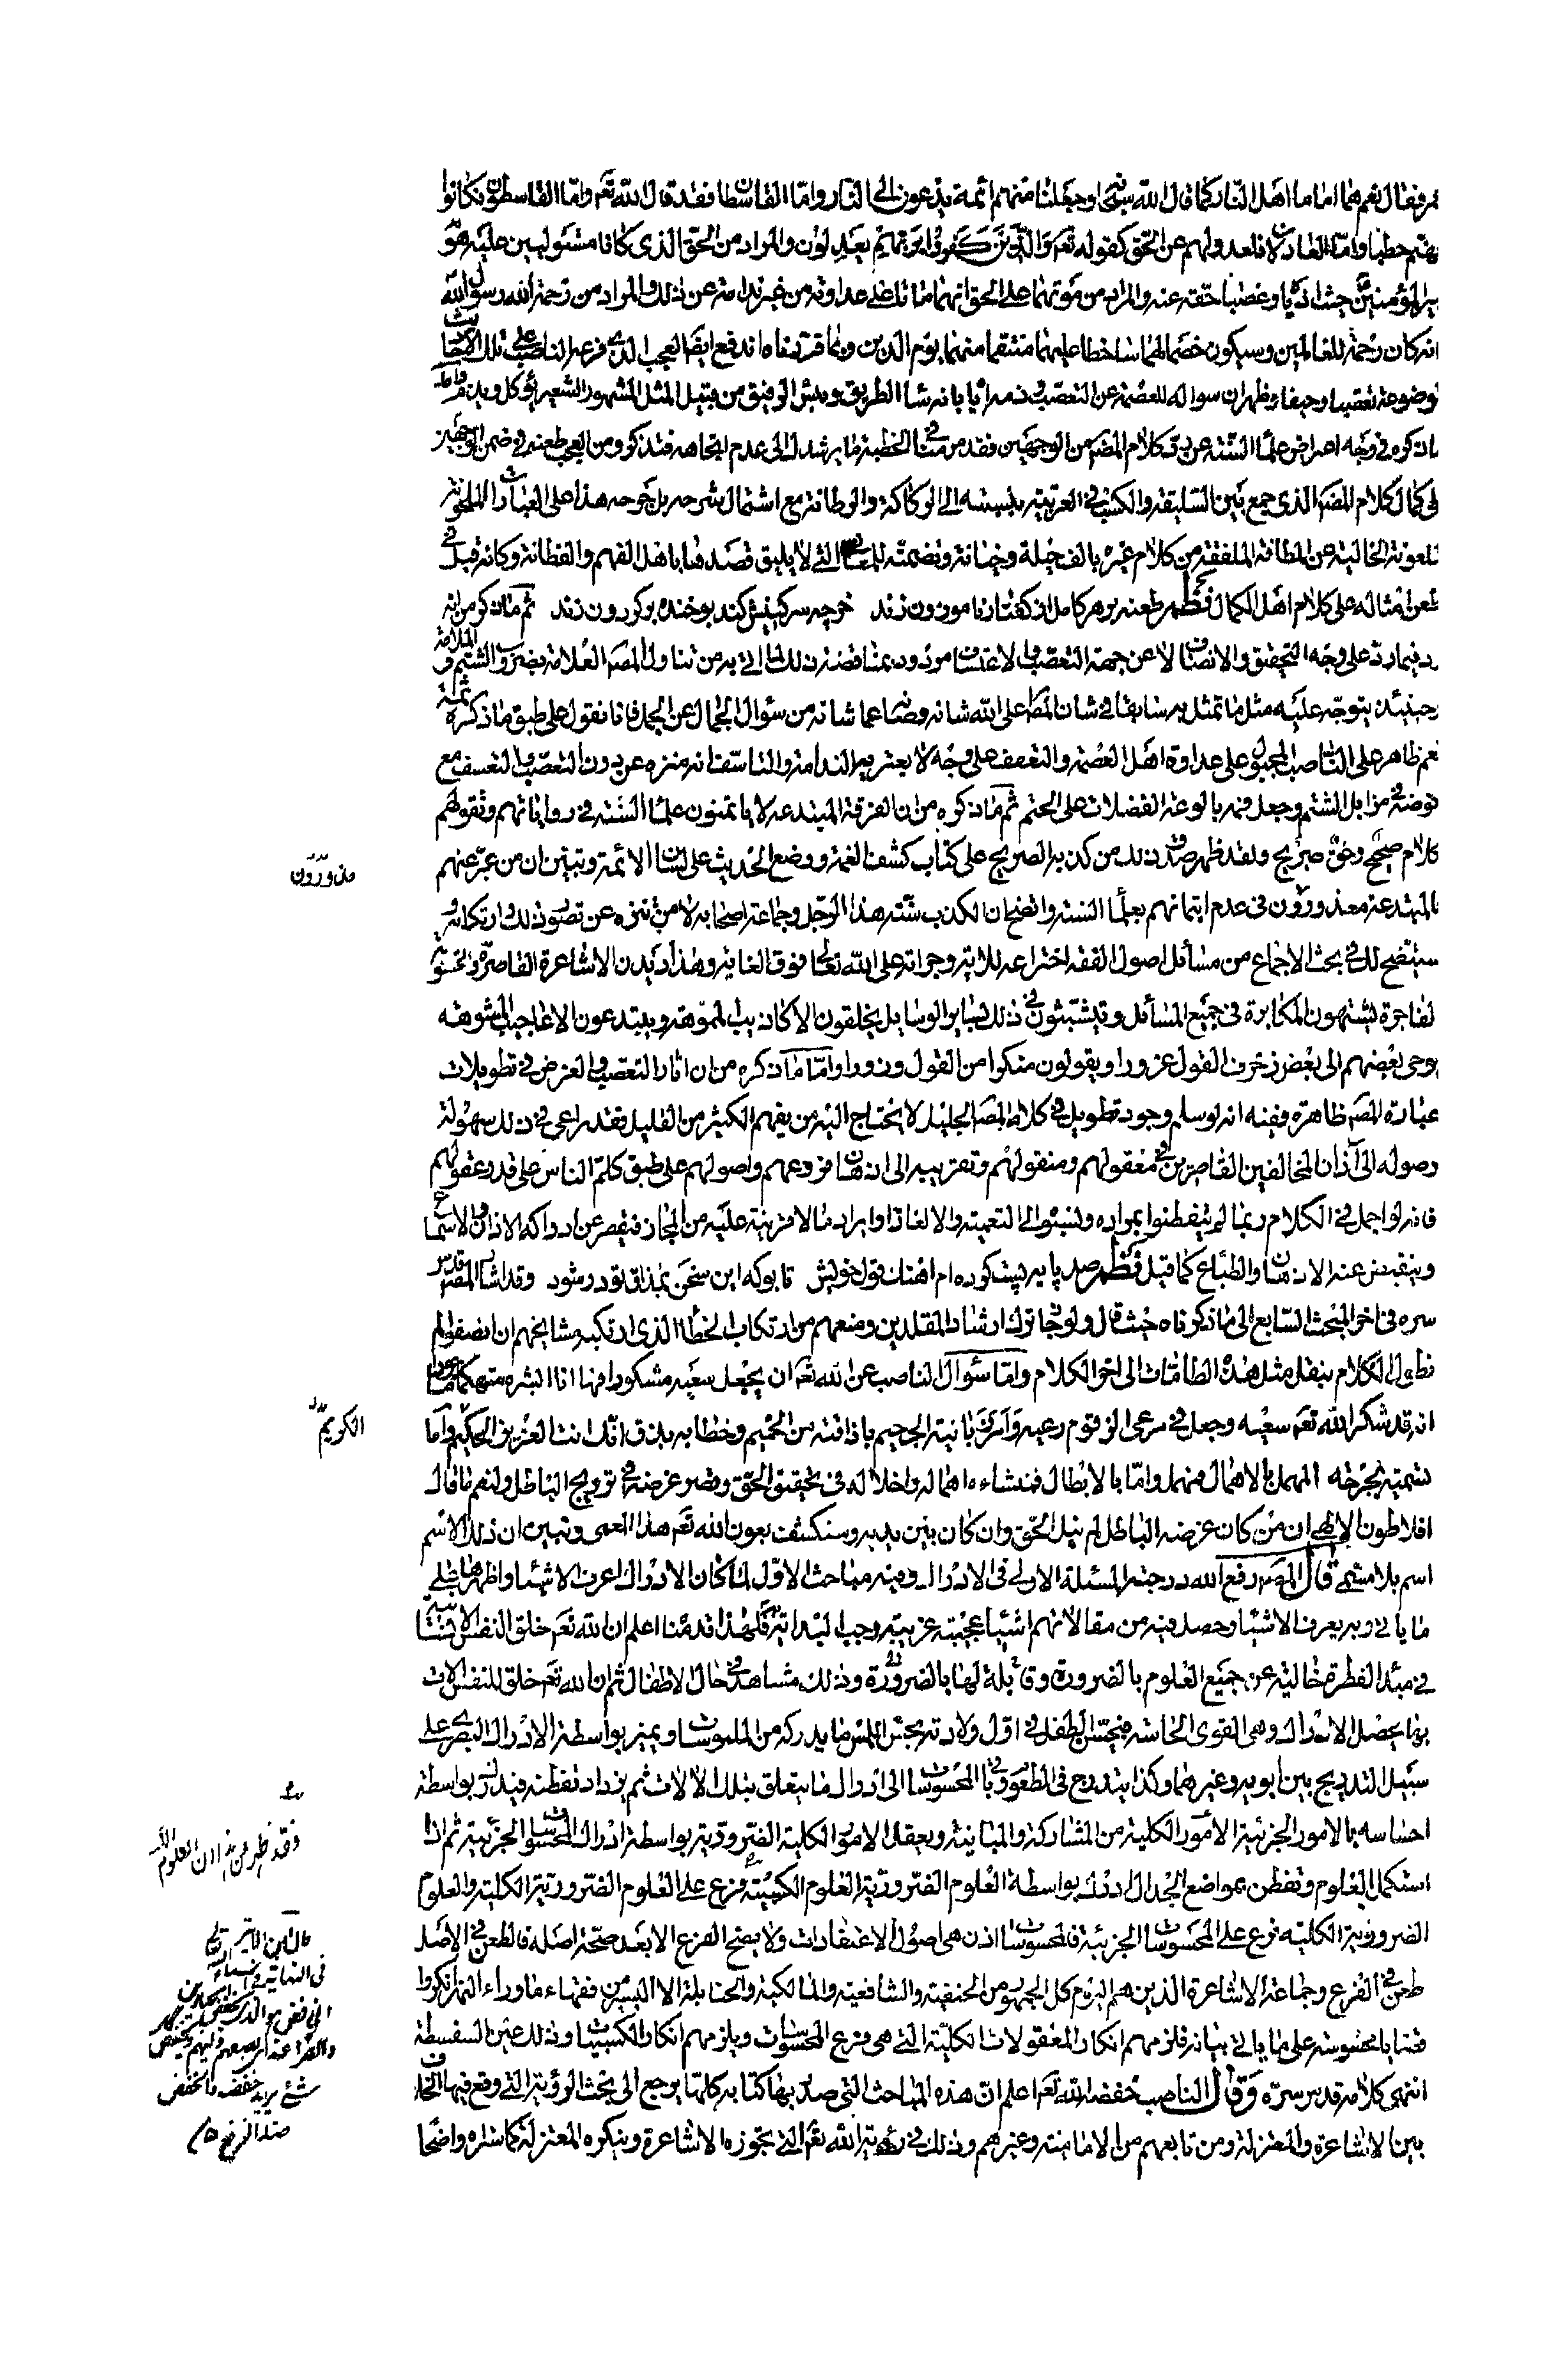 فقال نعم هما اماما اهل النار كما قال الله سبحانه وجعلنا منهم ائمة يدعون الى النار واما القاسطان فقد قال الله تعه واما القاسطون فكانوا
حطبا واما العادلان فلعدولهم عن الحق كقوله تعه والذين كفروا بربهم يعدلون والمراد من الحق الذى كانا مستوليين عليه هو
المؤمنين حيث اذياه وغصبا حقه عنه والمراد من موتهما على الحق انهما ماتا على عداوته من غير ندامة عن ذلك والمراد من رحمة الله رسول الله
انه كان رحمة للعالمين وسيكون خصما لهما ساخطا عليهما منتقما منهما يوم الدين وبما قررناه اندفع ايضا العجب الذى فرعه الناصب على تلك
تعصبا وحيفا وظهر ان سؤاله للعصمة عن التعصب فى
ما ذكره فى وجه اعراض علماء السنة عن رد كلام المصه من الوجهين فقد مر منا فى الخطبة ما يرشدك الى عدم اتجاهه فتذكر ومن العجب طعنه فى ضمن الوجهين
كمال كلام المصه الذى جمع بين السليقة والكسب فى العربية بنسبته الى الركاكة والرطانة مع اشتمال شرحه بل جرحه هذا على العبارات الملحونة
الخالية عن المطانة الملفقة من كلام غيره بالف حيلة وخيانة وتضمنه للمعانى التى لا يليق قصدها باهل الفهم والفطانة وكانه قيل فى
طعن امثاله على كلام اهل الكمال نظم طعنه بر هر كامل از گفتار ناموزون زند خر چو سرگينش كند بو خنده بر گردون زند ثم ما ذكر من انه
على وجه التحقيق والانصاف لا عن جهة التعصب والاعتساف مردود بمناقضة ذلك لما اتى به من تناول المصه العلامة بضروب الشتم والملامة
وحينئذ يتوجه عليه مثل ما تمثل به سابقا فى شان المصه اعلى الله شانه وصانه عما شانه من سؤال الجمال عن الجمل فانا نقول على طبق ما ذكره ثمة
نعم ظاهر على الناصب المجبول على عداوة اهل العصمة والتعفف على وجه لا يعتريه الندامة والتاسف انه منزه عن درن التعصب والتعسف مع
خوضه فى مزابل الشتم وجعل فمه بالوعة الفضلات على الحتم ثم ما ذكره من ان الفرقة المبتدعة لا ياتمنون علماء السنة فى رواياتهم ونقولهم
كلام صحيح وحق صريح ولقد ظهر صدق ذلك من كذبه الصريح على كتاب كشف الغمة ووضع الحديث على لسان الائمة وتبين ان من عبر عنهم
بالمبتدعة معذورون فى عدم ايتمانهم بعلماء السنة واتضح ان الكذب سنة هذا الرجل وجماعة اصحابه لا من تنزه عن تصور ذلك وارتكابه و
سيتضح لك فى بحث الاجماع من مسائل اصول الفقه اختراعه للاية وجراته على الله تعالى فوق الغاية وهذا ديدن الاشاعرة القاصرة والحشوية
الفاجرة يشتهون المكابرة فى جميع المسائل ويتشبثون فى ذلك بساير الوسايل يخلقون الاكاذيب المموهة ويبتدعون الاعاجيب المشوهة
يوحى بعضهم الى بعض زخرف القول غرورا ويقولون منكرا من القول وزورا واما ما ذكره من ان اثار التعصب والغرض فى تطويلات
عبارة المصه ظاهرة ففيه انه لو سلم وجود تطويل فى كلام المصه الجليل لا يحتاج اليه من يفهم الكثير من القليل فقد راعى فى ذلك سهولة
وصوله الى آذان المخالفين القاصرين فى معقولهم ومنقولهم وتقريبه الى اذهان فروعهم واصولهم على طبق كلم الناس على قدر عقولهم
فانه لو اجمل فى الكلام ربما لم يتفطنوا بمراده ولنسبوا الى التعمية والالغاز او ايراد ما لا قرينة عليه من المجاز فيقصر عن ادراكه الاذهان والاسماع
وينقبض عنه الاذهان والطباع كما قيل نظم صد پايه پست كرده ام اهنگ قول خويش تا بو كه اين سخن بمذاق تو در شود وقد اشار المصه قدس
سره فى اخر المبحث السابع الى ما ذكرناه حيث قال ولو جاز ترك ارشاد المقلدين ومنعهم من ارتكاب الخطا الذى ارتكبه مشايخهم ان انصفوا لم
نطول الكلام بنقل مثل هذه الطامات الى اخر الكلام واما سؤال الناصب عن الله تعه ان يجعل سعيه مشكورا فها انا ابشره متهكما مبرورا
انه قد شكر الله تعه سعيه وجعل فى مرعى الزقوم رعيه وامر زبانية الجحيم باذاقته من الحميم وخطابه بذق انك انت العزيز الحكيم واما
تسمية جرحه المهمل بالاهمال مهمل واما بالابطال فمنشاءه اهماله واخلاله فى تحقيق الحق وقصر غرضه فى ترويج الباطل ولنعم ما قال
افلاطون الالهى ان من كان غرضه الباطل لم ينل الحق وان كان بين يديه وسنكشف بعون الله تعه هذا المعمى ونبين ان ذلك الاسم
اسم بلا مسمى قال المصه رفع الله درجته المسئلة الاولى فى الادراك وفيه مباحث الاول لما كان الادراك اعرف الاشياء واظهرها على
ما ياتى وبه يعرف الاشياء وحصل فيه من مقالاتهم اشياء عجيبة غريبة وجب البداءة به فلهذا قدمنا اعلم ان الله تعه خلق النفس الانسانية
فى مبدا الفطرة خالية عن جميع العلوم بالضرورة وقابلة لها بالضرورة وذلك مشاهد فى حال الاطفال ثم ان الله تعه خلق للنفس الات
بها يحصل الادراك وهى القوى الحاسة فيحس الطفل فى اول ولادته بحس اللمس ما يدركه من الملموسات ويميز بواسطة الادراك البصرى على
سبيل التدريج بين ابويه وغيرهما وكذا يتدرج فى الطعوم وفى باقى المحسوسات الى ادراك ما يتعلق بتلك الالات ثم يزداد تفطنه فيدرك بواسطة
احساسه بالامور الجزئية الامور الكلية من المشاركة والمباينة ويعقل الامور الكلية الضرورية بواسطة ادراك المحسوسات الجزئية ثم اذا
استكمل العلوم وتفطن بمواضع الجدال ادرك بواسطة العلوم الضرورية العلوم الكسبية فرع على العلوم الضرورية الكلية والعلوم
الضرورية الكلية فرع على المحسوسات الجزئية فالمحسوسات اذن هى اصول الاعتقادات ولا يصح الفرع الا بعد صحة اصله فالطعن فى الاصل
طعن فى الفرع وجماعة الاشاعرة الذين هم اليوم كل الجمهور من الحنفية والشافعية والمالكية والحنابلة الا اليسير من فقهاء ماوراء النهر انكروا
قضايا محسوسة على ما ياتى بيانه فلزمهم انكار المعقولات الكلية التى هى فرع المحسوسات ويلزمهم انكار الكسبيات وذلك عين السفسطة
انتهى كلامه قدس سره وقال الناصب خفضه الله تعه اعلم ان هذه المباحث التى صدر بها كتابه كلها يرجع الى بحث الرؤية التى وقع فيها الخلاف
بين الاشاعرة والمعتزلة ومن تابعهم من الامامية وغيرهم وذلك فى رؤية الله تعه التى تجوزه الاشاعرة وينكره المعتزلة كما ستراه واضحا
معذورون
الكريم
فقد ظهر من هذا ان العلوم
قال ابن الاثير
فى النهاية فى اسماء الله
شئ يريد خفضه والخفض
ضد الرفع